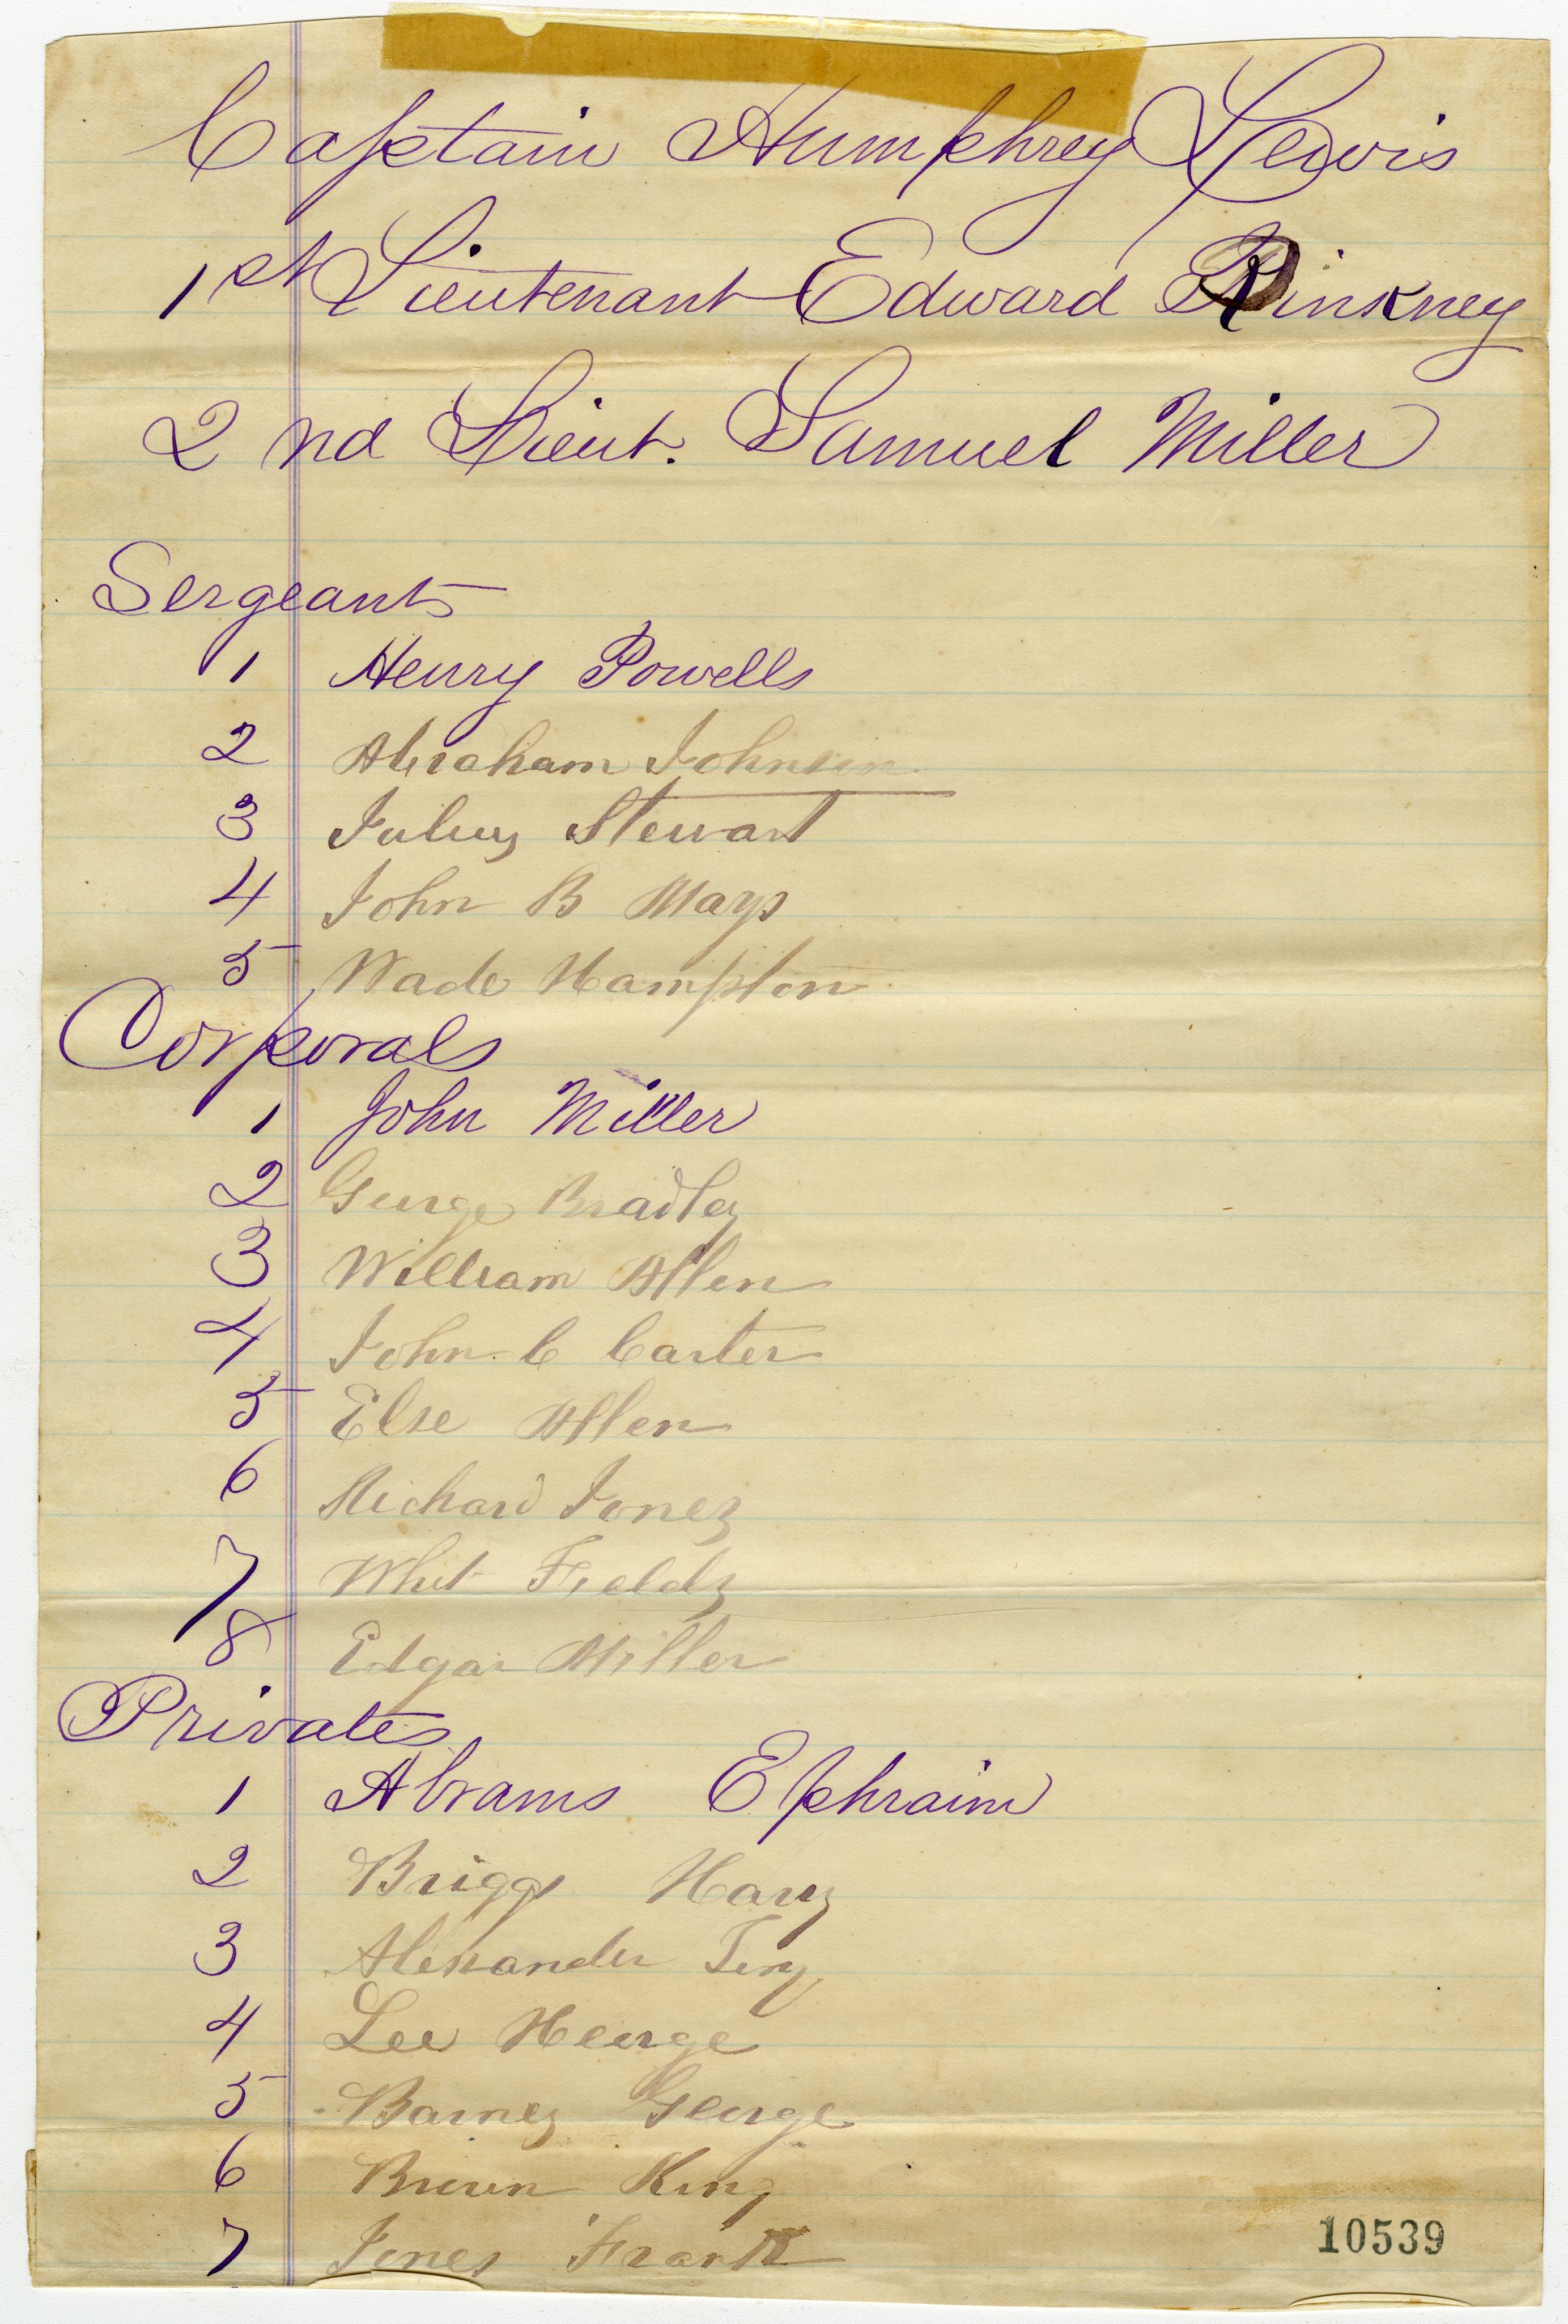 Captain Humphrey Lewis
1st Lieutenant Edward Pinkney
2nd Lieut. Samuel Miller
Sergeants
1 Henry Powells
2 Abraham Johnson
3 Julius Stewart
4 John B Mays
5 Wade Hampton
Corporals
1 John Miller
2 George Bradley
3 William Allen
4 John C Carter
5 Else Allen
6 Richard Jones
7 Whit Fields
8 Edgar Miller
Privates
1 Abrams Ephraim
2 Briggs Harry
3 Alexander
4 Lee George
5 Barnes George
6 Brown King
7 Jones Frank
10539